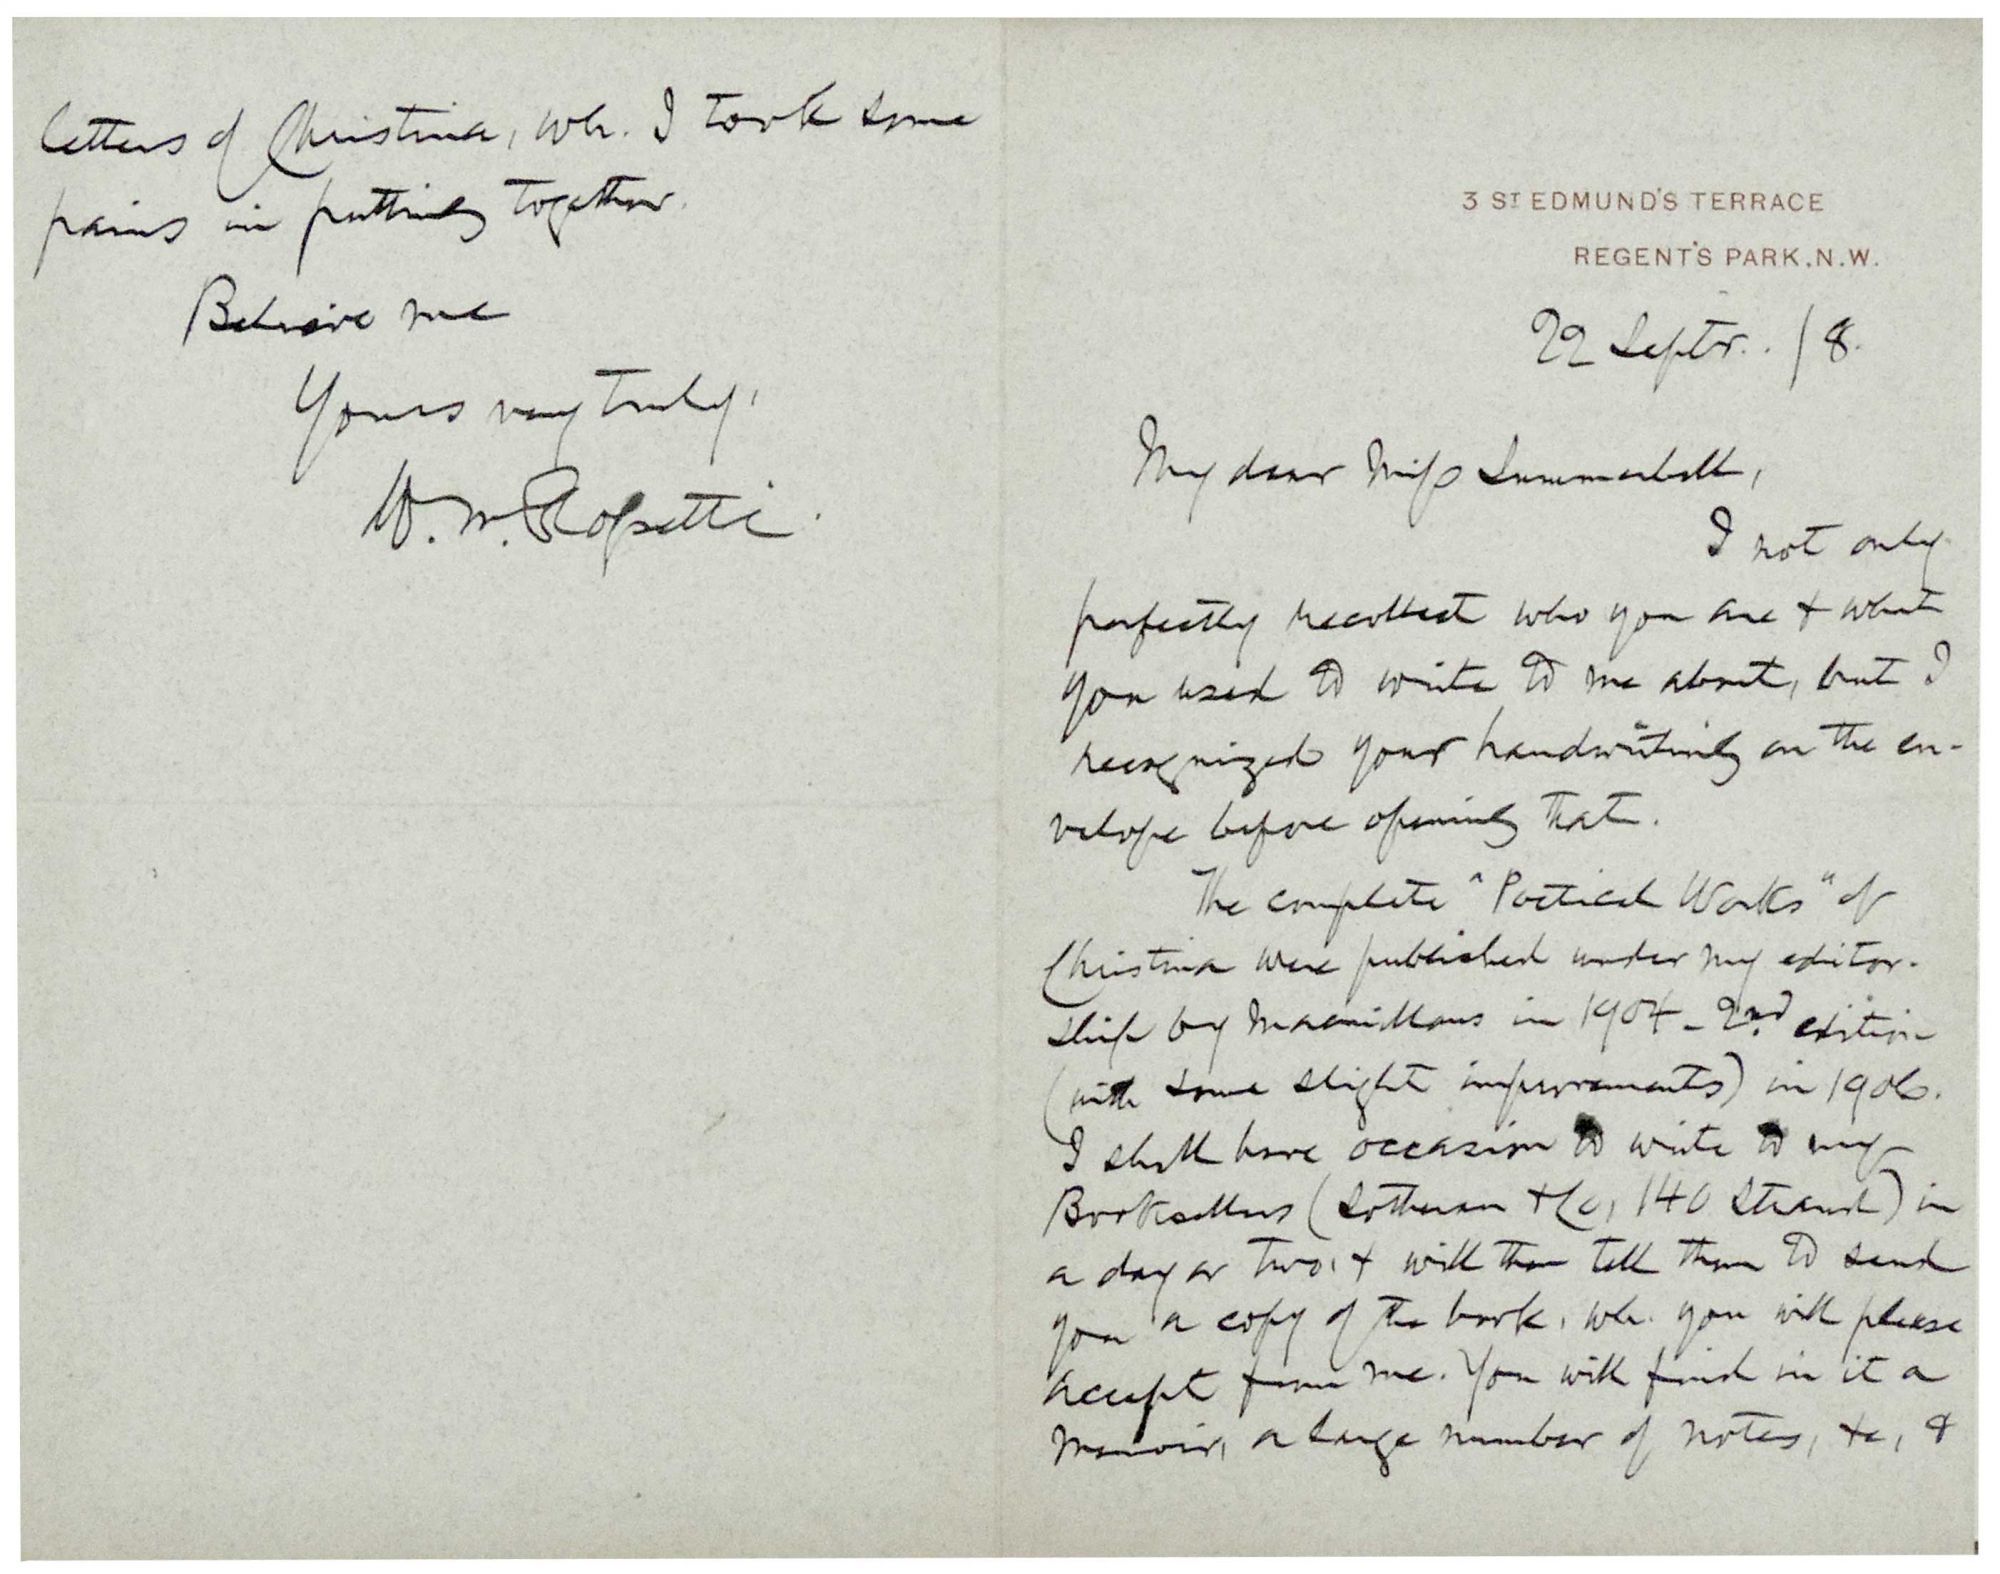 3 ST EDMUND'S TERRACE
REGENT'S PARK, N.W.
22 Septr. /8.
My dear Miss Summerbell,
I not only
perfectly recollect who you are & what
you used to write to me about, but I
recognized your handwriting on the en-
velope before opening that.
The complete "Poetical Works" of
Christina were published under my editor-
ship by Macmillans in 1904 - 2nd edition
(with some slight improvements) in 1906.
I shall have occasion to write to my
Booksellers (Sotheran & Co, 140 Strand) in
a day or two, & will then tell them to send
you a copy of the book, wh. you will please
accept from me. You will find in it a
Memoir, a large number of notes, &c, &
letters of Christina, wh. I took some
pains in putting together.
Believe me
Yours very truly,
W. M. Rossetti.